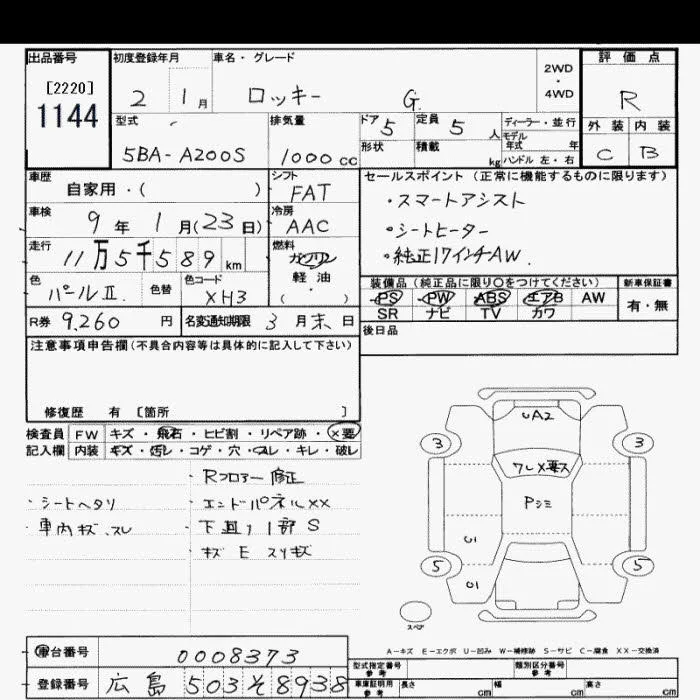 出品番号
[2220]
1144
初度登録年月
2 1 月
車名・グレード
ロッキー G
2WD
・
4WD
評価点
R
外装 内装
C B
型式
5BA-A200S
排気量
1000 cc
ドア 5
定員 5 人
形状
積載 kg
ディーラー・並行
モデル年式 年式
ハンドル 左・右
車歴
自家用・( )
シフト
FAT
車検
9 年 1 月(23 日)
冷房
AAC
走行
11万5千589 km
燃料
ガソリン
軽・油
・
( )
色
パールII
色替
色コード
XH3
R券 9,260 円
名変通知期限 3 月 末 日
セールスポイント(正常に機能するものに限ります)
・スマートアシスト
・シートヒーター
・純正17インチAW.
装備品(純正品に限り〇をつけてください)
PS PW ABS エアB AW
SR ナビ TV カワ
新車保証書
有・無
後日品
注意事項申告欄(不具合内容等は具体的に記入して下さい)
修復歴 有 [箇所 ]
検査員記入欄
FW キズ・飛石・ヒビ割・リペア跡・×要
内装 キズ・汚レ・コゲ・穴・スレ・キレ・破レ
・シートヘタリ
・車内キズ、スレ
・Rフロアー修正
・エンドパネルXX
・下廻り1部S
・キズ E スリキズ
UA2
3 3
ワレ×要ス
Pシミ
5 5
スペア
A-キズ E-エクボ U-凹み W-補修跡 S-サビ C-腐食 XX-交換済
車台番号 0008373
登録番号 広島 503 そ 8938
型式指定番号
参考
類別区分番号
参考
車庫証明用
参考
長さ cm 幅 cm 高さ cm